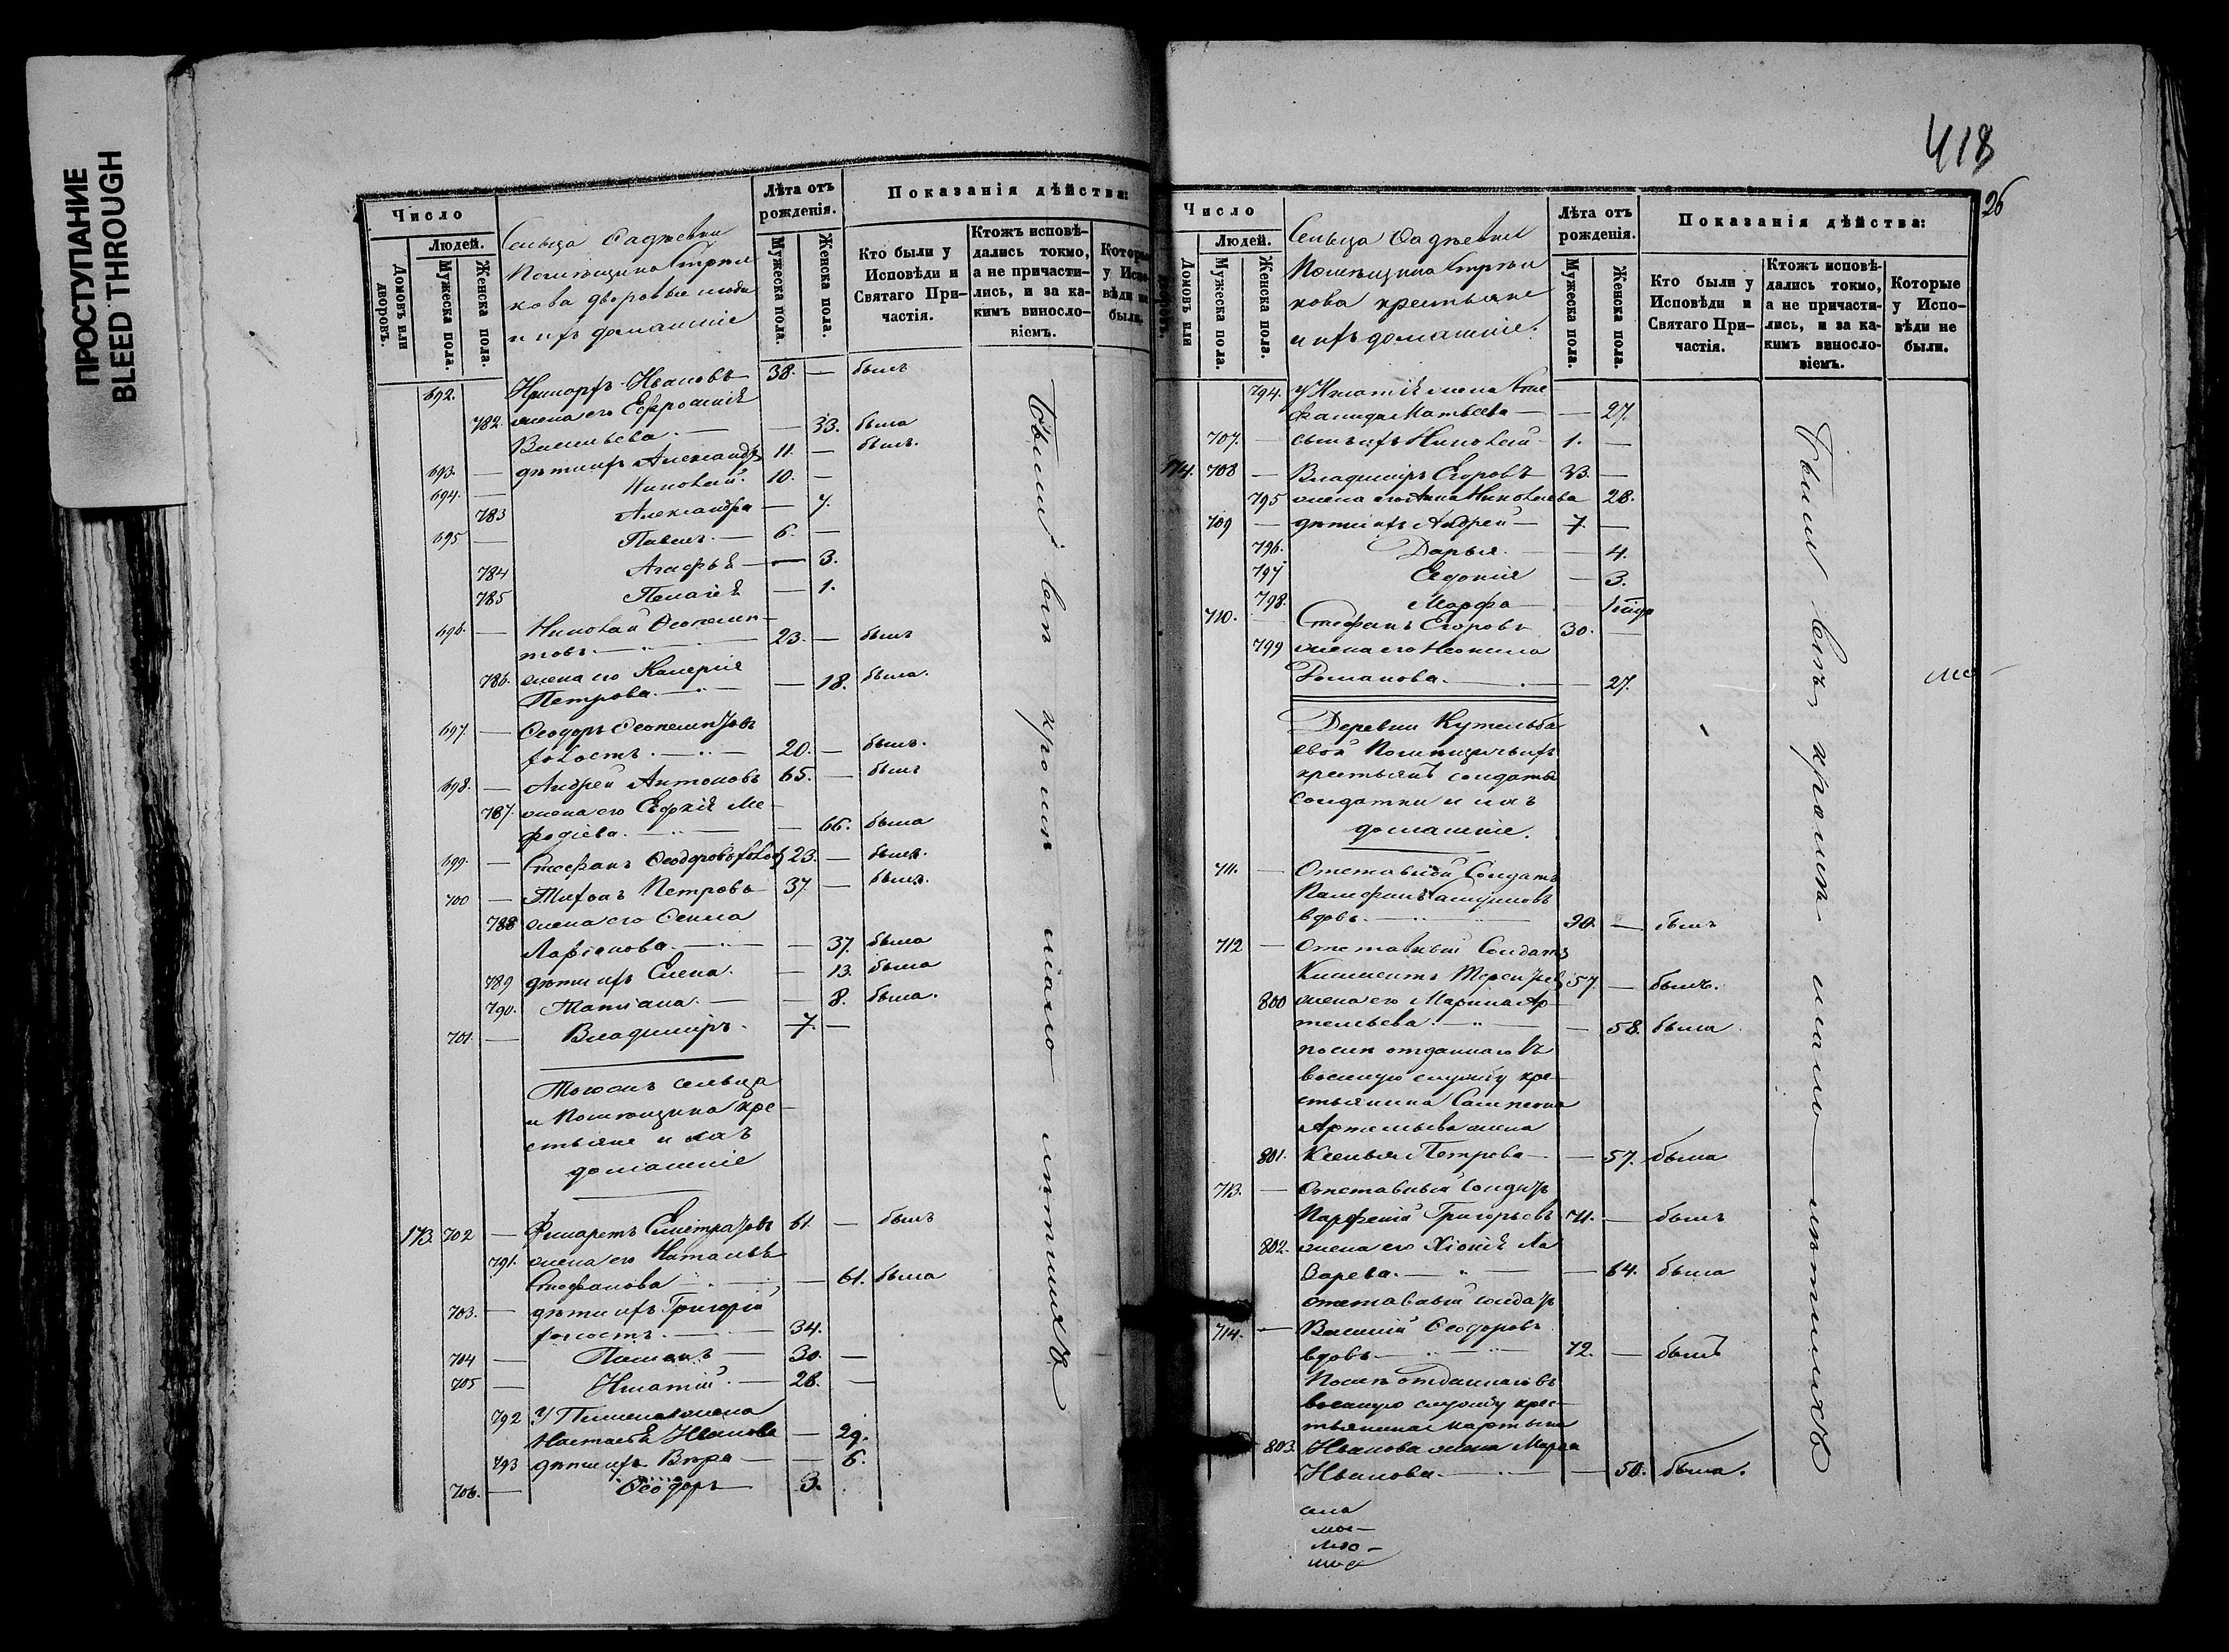 ПРОСТУПАНИЕ
BLEED THROUGH
Число
Людей.
Домовъ или дворовъ.
Мужеска пола.
Женска пола.
Сельца
Помѣщика
кова дворовые люди
и ихъ домашніе
Лѣта отъ рожденія.
Мужеска пола.
Женска пола.
Показанія дѣйства:
Кто были у Исповѣди и Святаго Причастія.
Ктожъ исповѣдались токмо, а не причастились, и за какимъ винословіемъ.
Которые у Исповѣди не были.
692. Ивановъ 38. — былъ
782. жена его Ефросинія
Васильева — 33. была
693. — дѣти ихъ Александръ 11. — былъ.
694. — Николай 10. —
783 Александра — 7.
695 — Павелъ — 6. —
784 Агафья — 3.
785 Пелагея — 1.
696. — Николай Ѳеопемп-
товъ — 23. — былъ
786. жена его Валерія
Петрова — 18. была.
697. — Ѳеодоръ Ѳеопемптовъ
холостъ — 20. — былъ.
698. — Андрей Антоновъ 65. — былъ
787. жена его Ме-
фодіева — 66. была
699. — Стефанъ Ѳеодоровъ 23. — былъ.
700 — Тихонъ Петровъ 37 — былъ.
788 жена его
Ларіонова — 37. была
789 дѣти ихъ Елена. — 13. была
790. Татіана — 8. была.
701. — Владиміръ. 7. —
Тогожъ сельца
и Помѣщика кре-
стьяне и ихъ
домашніе
173. 702 — Филаретъ 61. — былъ
791. жена его Наталья
Стефанова — 61. была
703. — дѣти ихъ Григорій
холостъ — 34.
704 — Пименъ — 30. —
705 — Игнатій — 28. —
792 У Пимена жена
Настасья Иванова — 29.
793 дѣти ихъ Вѣра — 6.
706. — Ѳеодоръ 3.
Были всѣ кромѣ мало лѣтнихъ
418
26
Число
Людей.
Домовъ или дворовъ.
Мужеска пола.
Женска пола.
Сельца
Помѣщика
кова крестьяне
и ихъ домашніе.
Лѣта отъ рожденія.
Мужеска пола.
Женска пола.
Показанія дѣйства:
Кто были у Исповѣди и Святаго Причастія.
Ктожъ исповѣдались токмо, а не причастились, и за какимъ винословіемъ.
Которые у Исповѣди не были.
794. У Игнатія жена
Матвеева — 27.
707. — сынъ ихъ Николай 1. —
174. 708 — Владиміръ Егоровъ 33. —
795 жена его Анна Николаева 28.
709 — дѣти ихъ Андрей — 7. —
796. Дарья — 4.
797 Евдокія — 3.
798. Марфа —
710. — Стефанъ Егоровъ 30. —
799 жена его Неонила
Романова — 27.
Деревни
Помѣщичьихъ
крестьянъ солдаты
солдатки и ихъ
домашніе.
711. — Отставный Солдатъ
вдовъ — 90. — былъ
712 — Отставный Солдатъ
Климентъ 57 — былъ.
800 жена его Марина Ар-
темьева — 58. была
послѣ отданнаго въ
военную службу кре-
стьянина
Артемьева жена
801. Ксенья Петрова — 57. была
713. — Отставный солдатъ
Парфеній Григорьевъ 71. — былъ
802. жена его Хіонія Ла-
зарева — 64. была
отставный солдатъ
714. — Василій Ѳеодоровъ
вдовъ — 72. — былъ
Послѣ отданнаго въ
военную службу крес-
тьянина Мартына
803. Иванова жена Марѳа
Иванова — 50. была.
Были всѣ кромѣ мало — лѣтнихъ